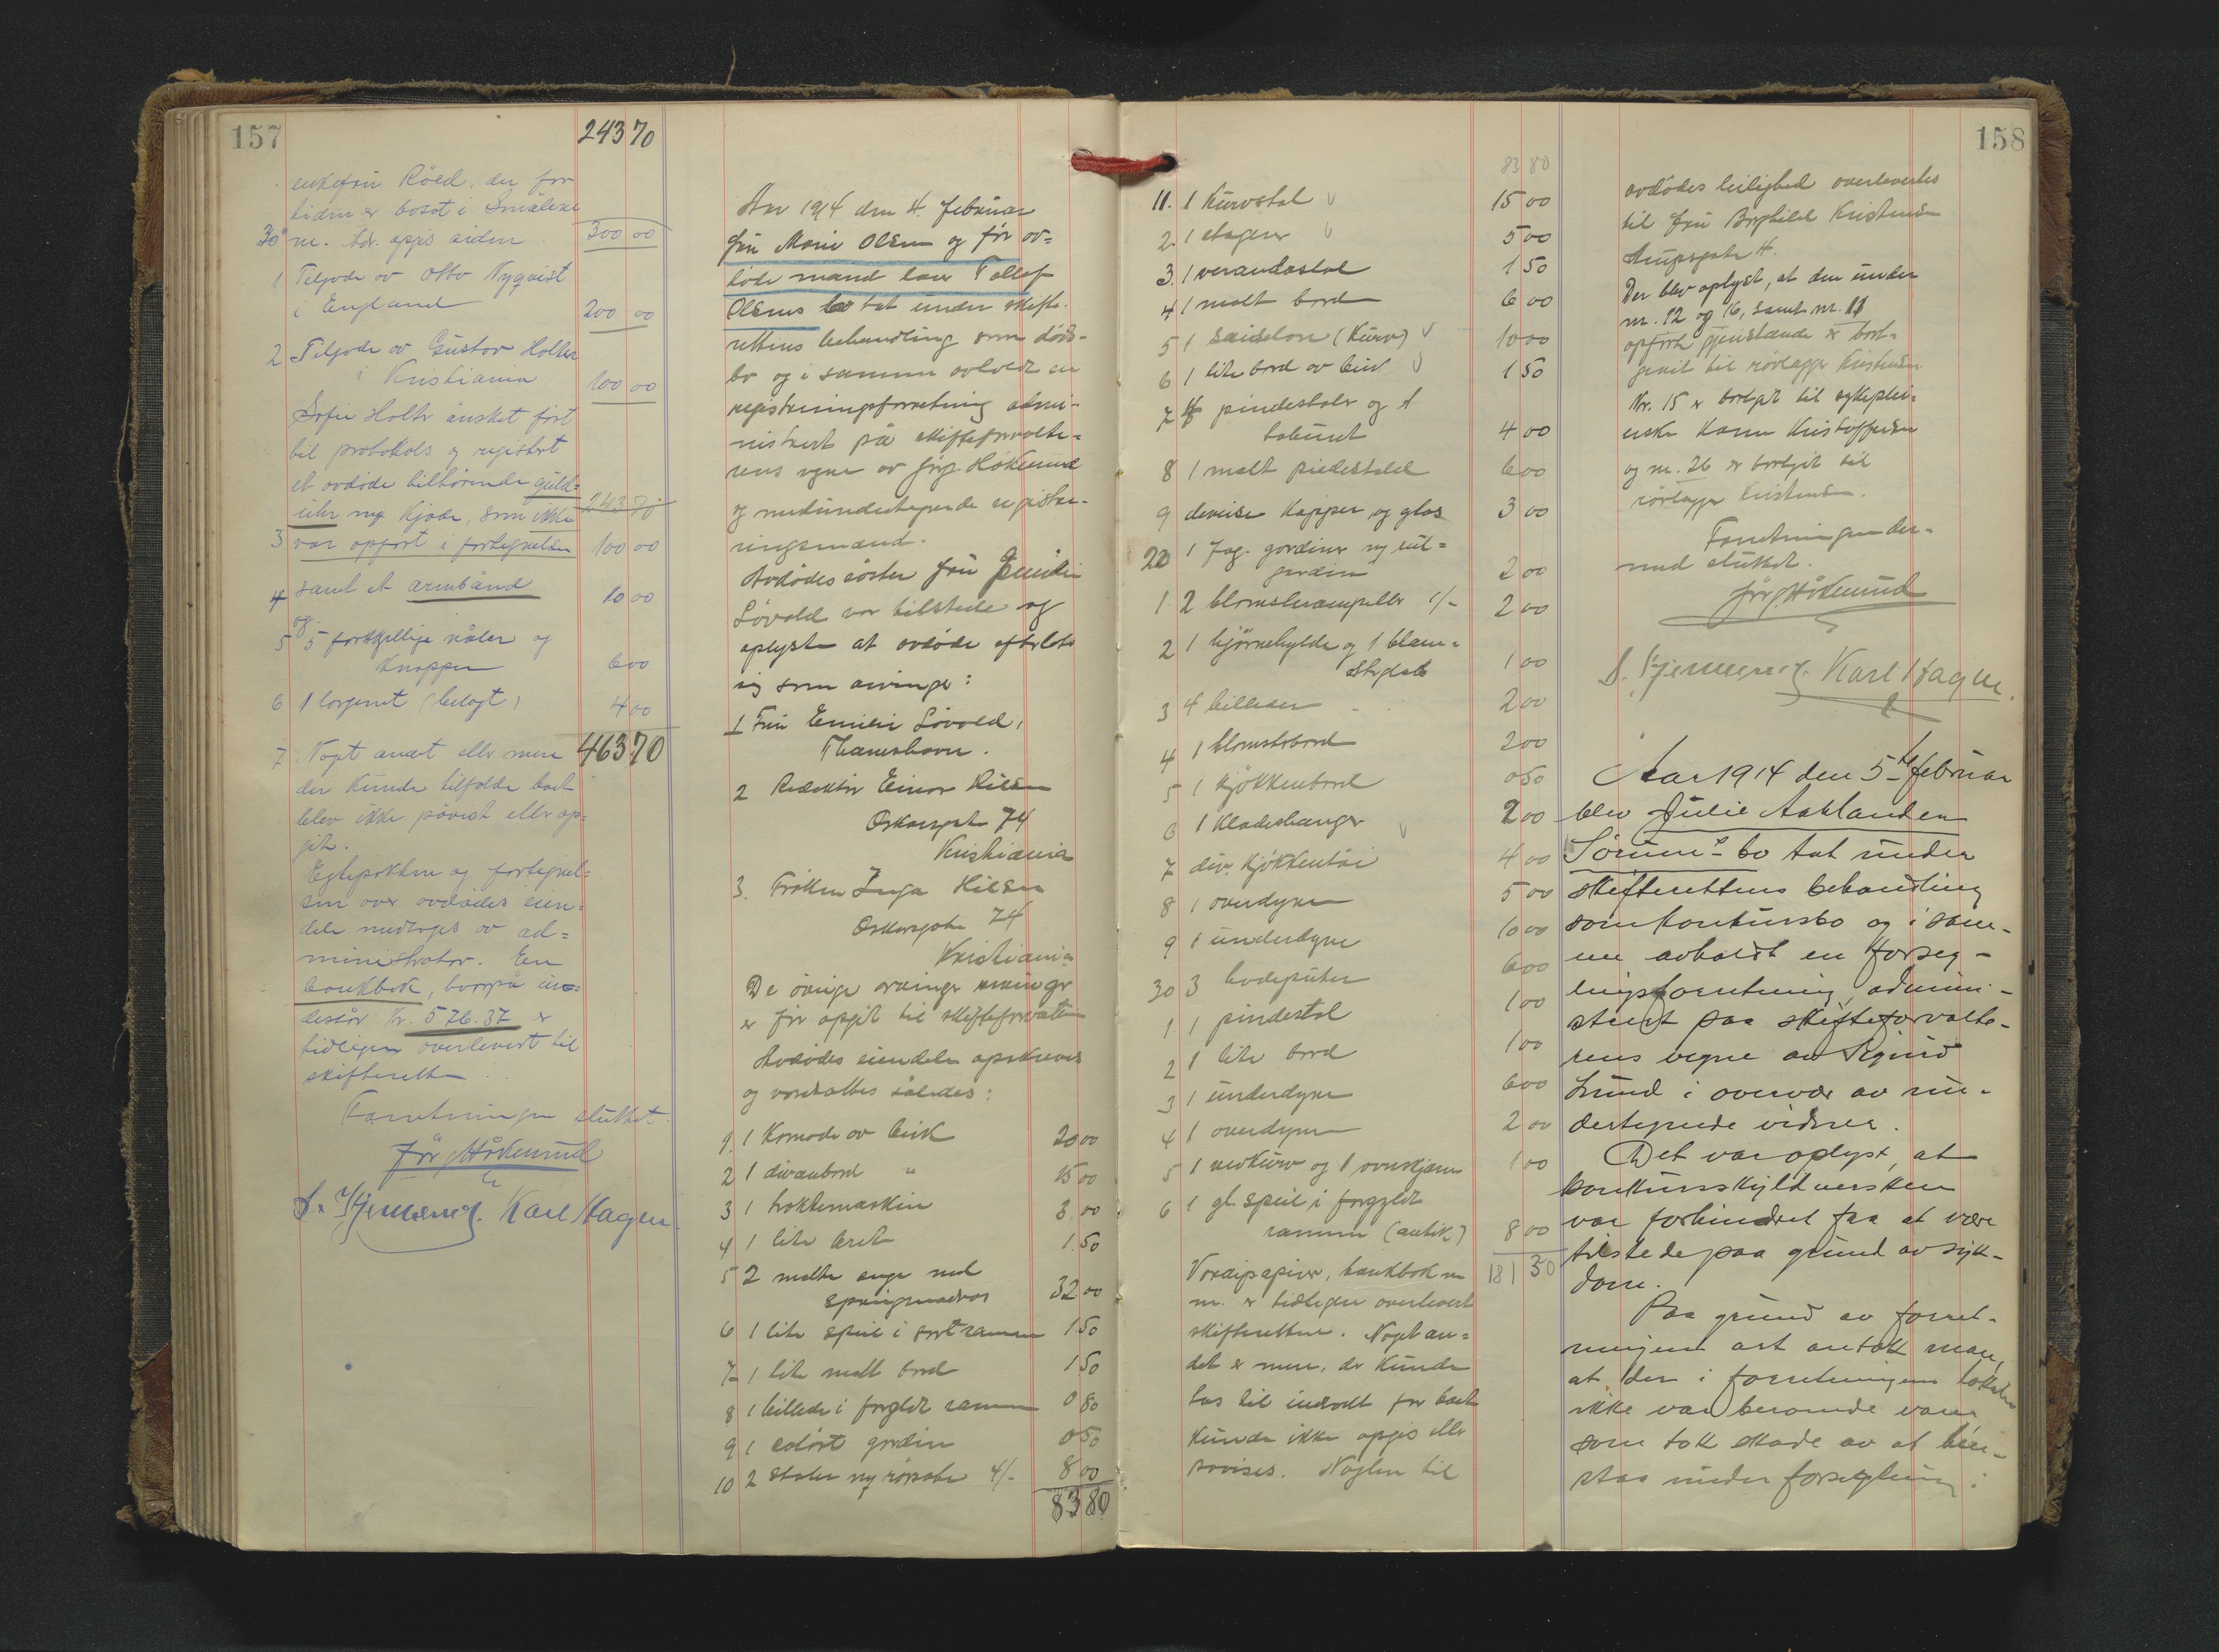 157
243 70
enkefru Röed, der for
tiden er bosat i Smålene
30 ne. Adr. opgis siden 300 00
1 Tilgode av Otto Nyqvist
i England 200 00
2 Tilgode av Gustav Holter
i Kristiania 100 00
Sofie Holter ønsket ført
til protokols og registrert
et avdøde tilhørende guld=
uhr med kjede, som ikke 243 70
3 var opført i fortegnelsen 100 00
4 samt et armbånd 10 00
og
5 5 forskjellige nåler og
knapper 6 00
6 1 lorgnet (belagt) 4 00
463 70
7 Noget andet eller mere
der kunde tilfalde boet
blev ikke påvist eller op=
git.
Egtepakten og fortegnel=
sen over avdødes eien=
dele medtages av ad=
ministrator. En
bankbok, hvorpå in=
destår Kr. 576.37 er
tidligere overlevert til
skifteretten.
Forretningen sluttet.
Jör. Håkenrud
Karl Hagen
Aar 1914 den 4. februar
fru Marie Olsen og før av=
døde mand Tollef
Olsens bo tat under skifte=
rettens behandling som døds=
bo og i samme avholdt en
registreringsforretning admi=
nistrert på skifteforvalte=
rens vegne av Jörg. Håkenrud
og medundertegnede registre=
ringsmænd.
Avdødes søster fru Emilie
Løvold var tilstede og
oplyste at avdøde efterlot
sig som arvinger:
1 Fru Emilie Løvold,
Thamshavn.
2 Redaktør Einar Hilsen
Oskarsgate 74
Kristiania
3. Frøken Inga Hilsen
Oskarsgate 74
Kristiania
De øvrige arvinger
er før opgit til skifteforvalteren
Avdødes eiendele opskreves
og værdsattes således:
1. 1 Komode av birk 20 00
2 1 divanbord " 15 00
3 1 traktemaskin 3 00
4 1 lite bret 1.50
5 2 malte senge med
springmadras 32 00
6 1 lite speil i sort ramme 1 50
7 1 lite malt bord 1 50
8 1 billede i forgyldt ramme 0 80
9 1 gardin 0 50
10 2 stoler ny rørsete 4/- 8 00
83 80
158
83 80
11. 1 Kurvstol 15 00
2. 1 etagere 5 00
3. 1 verandastol 1 50
4 1 malt bord 6 00
5 1 (Kurv) 10 00
6 1 lite bord av birk 1 50
7 4 pindestoler og 1
taburet 4 00
8 1 malt piedestal 6 00
9 diverse Kopper og glas 3 00
20 1 fag. gardiner
gardin 2 00
1. 2 blomsterampeller 1/- 2 00
2 1 hjørnehylde og 1 blom=
sterstol 1 00
3 4 billeder 2 00
4 1 blomsterbord 2 00
5 1 kjøkkenbord 0 50
6 1 Kladeshenger 2 00
7 div. Kjøkkentøi 4 00
8 1 overdyne 5 00
9 1 underdyne 10 00
30 3 hodeputer 6 00
1 1 pindestol 1 00
2 1 lite bord 1 00
3 1 underdyne 6 00
4 1 overdyne 2 00
5 1 vedkurv og 1 ovnskjærm 1 00
6 1 gl. speil i forgyldt
ramme (antik) 8 00
181 30
Værdipapirer, bankbok m
m. er tidligere overlevert
skifteretten. Noget an=
det er mere, der kunde
tas til indtægt for boet
kunde ikke opgis eller
påvises. Nøglen til
avdødes leilighed overlevertes
til fru Borghild Kristensen
Arupsgate 4.
Der blev oplyst, at den under
nr. 12 og 16, samt nr. 11
opførte gjenstande er bort=
givet til rørlægger Kristensen
Nr. 15 er bortgit til sykeplei=
erske Karen Kristoffersen
og nr. 26 er bortgit til
rørlægger Kristensen.
Forretningen der=
med sluttet.
Jör. Håkenrud
Karl Hagen.
Aar 1914 den 5te februar
blev Julie Aaklanden
Sørum's bo tat under
skifterettens behandling
som konkursbo og i sam-
me avholdt en forseg-
lingsforretning, admini-
strert paa skifteforvalte-
rens vegne av Sigurd
Lund i overvær av un-
dertegnede vidner.
Det var oplyst, at
konkursskyldnersken
var forhindret fra at være
tilstede paa grund av syk-
dom.
Paa grund av forret-
ningens art antok man,
at der i forretningens lokaler
ikke var beroende varer
som tok skade av at hen-
staa under forsegling: